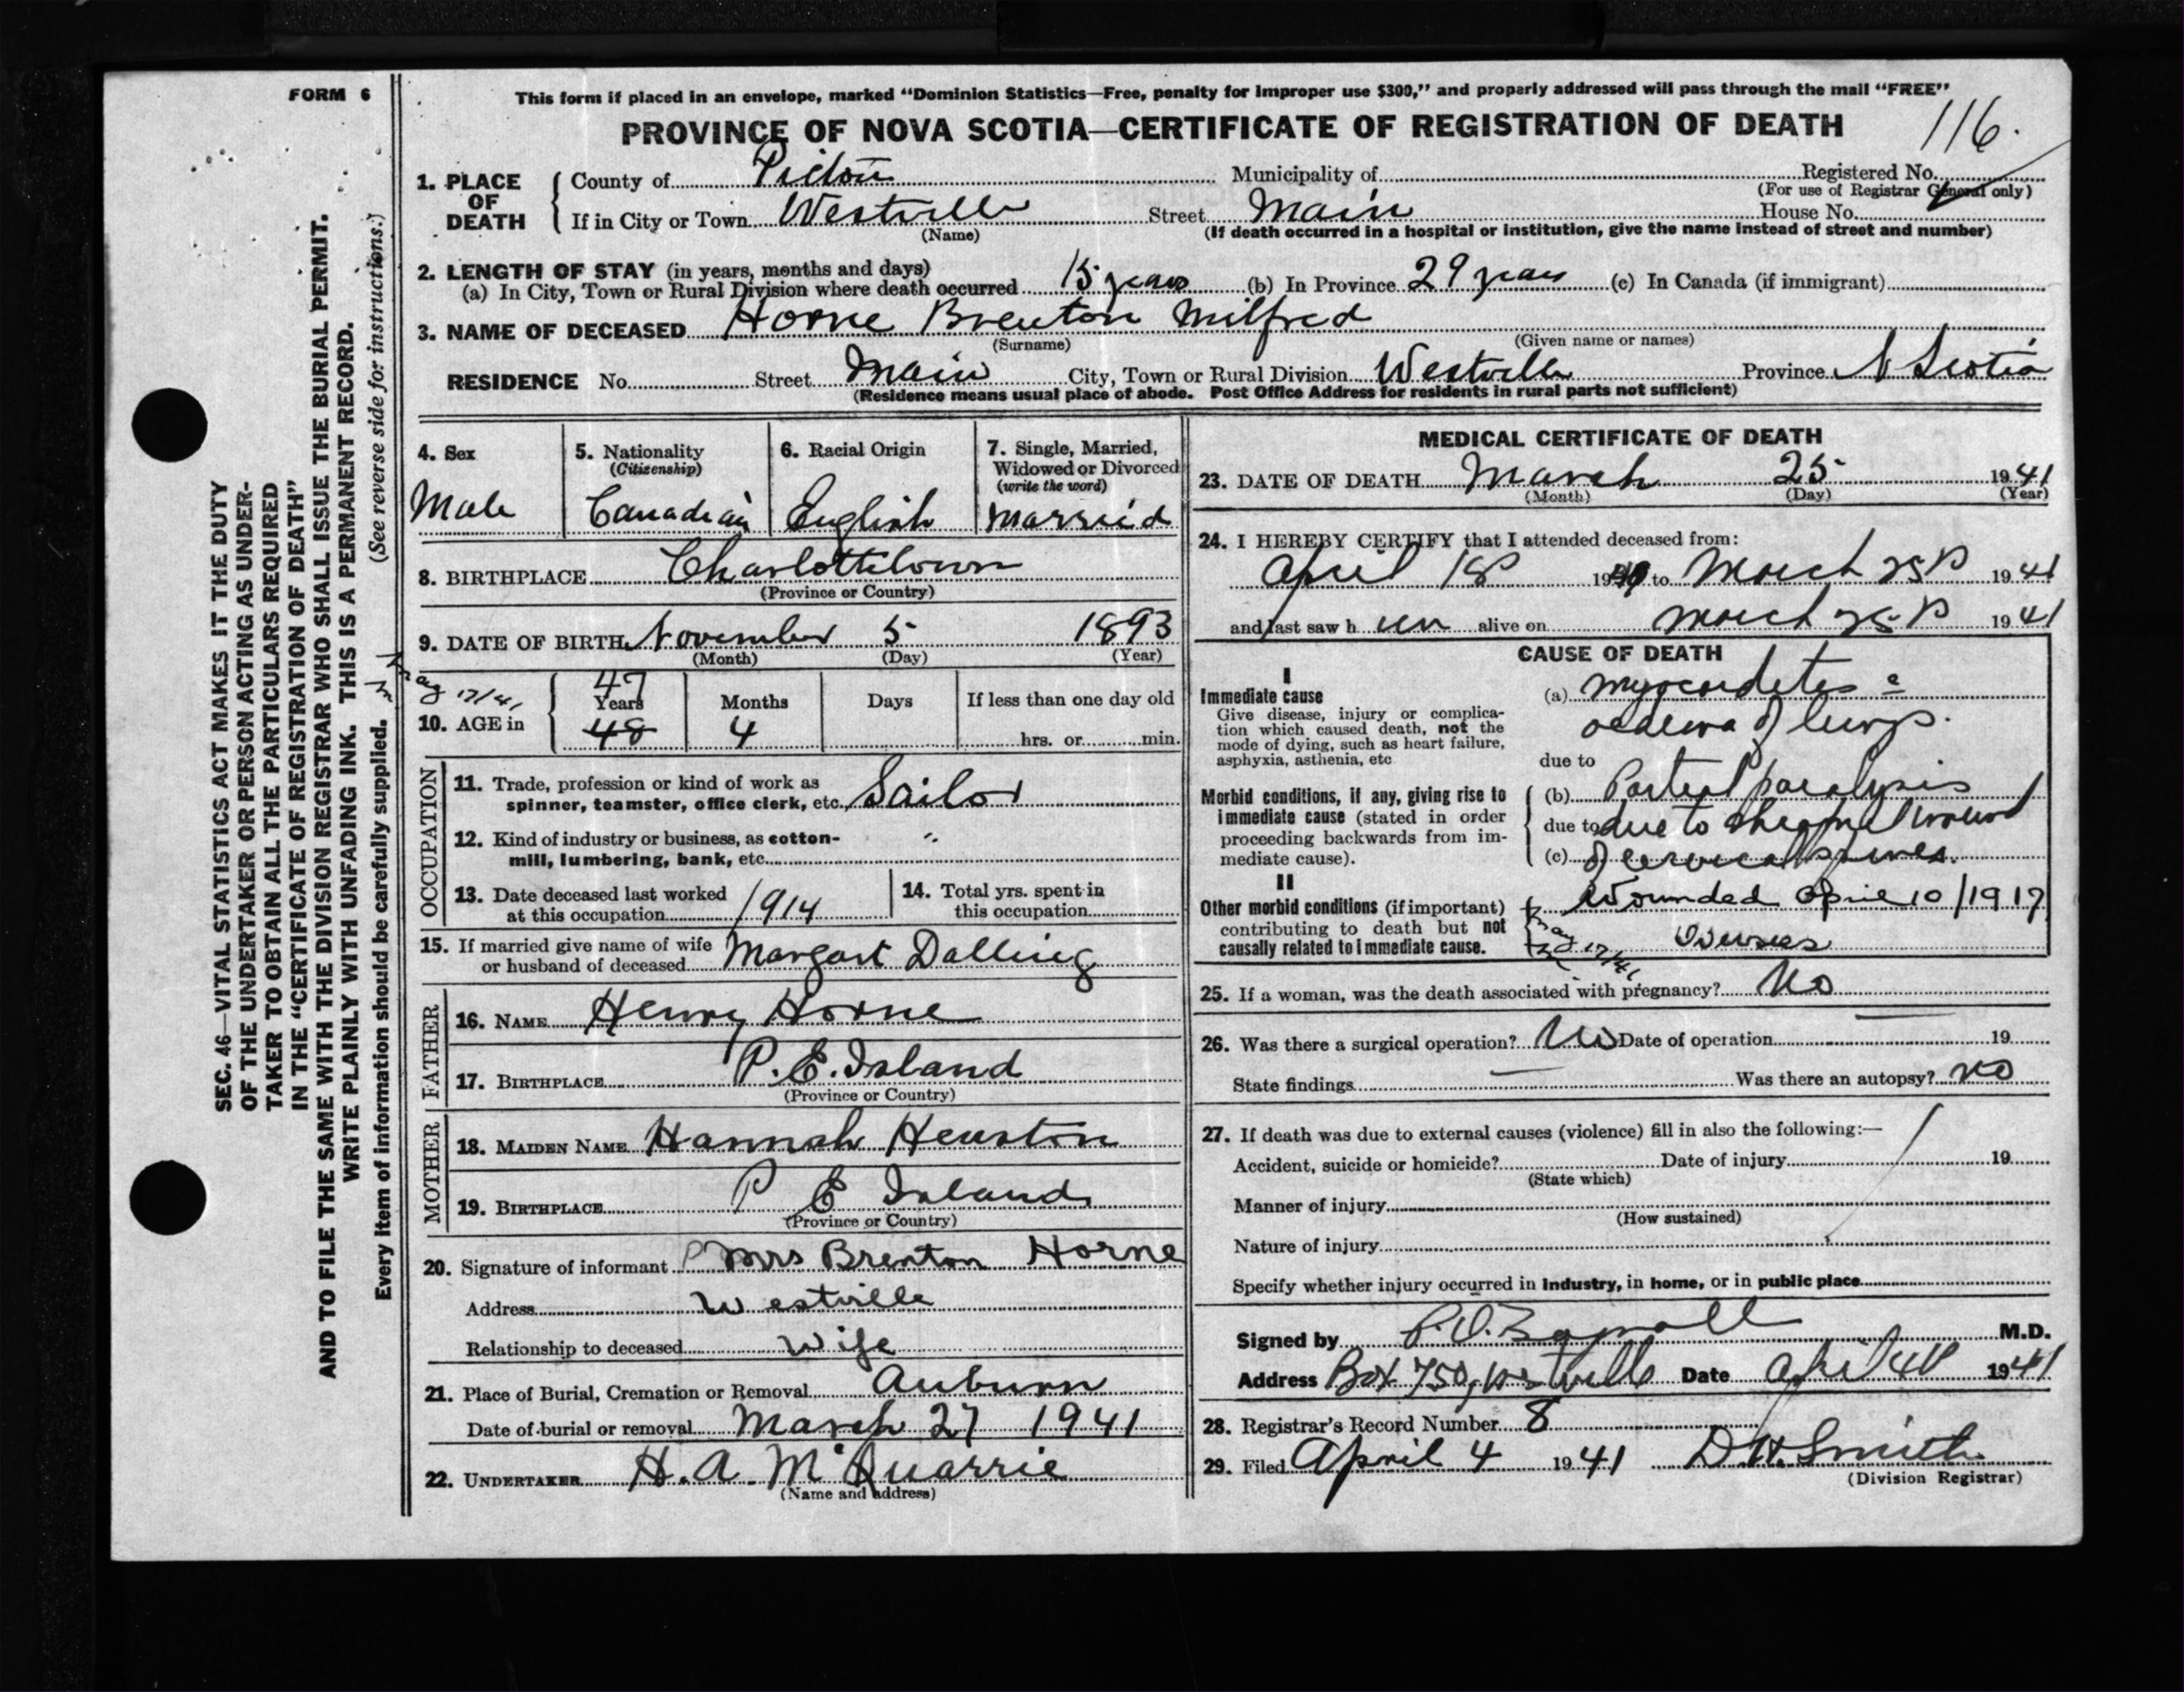 FORM 6
This form if placed in an envelope, marked "Dominion Statistics—Free, penalty for improper use $300," and properly addressed will pass through the mail "FREE"
PROVINCE OF NOVA SCOTIA—CERTIFICATE OF REGISTRATION OF DEATH
116.
1. PLACE OF DEATH
County of Pictou Municipality of Registered No.
(For use of Registrar General only)
If in City or Town Westville Street Main House No.
(Name) (If death occurred in a hospital or institution, give the name instead of street and number)
2. LENGTH OF STAY (in years, months and days)
(a) In City, Town or Rural Division where death occurred 15 years (b) In Province 29 years (c) In Canada (if immigrant)
3. NAME OF DECEASED Horne Brenton Milfred
(Surname) (Given name or names)
RESIDENCE No. Street Main City, Town or Rural Division Westville Province N Scotia
(Residence means usual place of abode. Post Office Address for residents in rural parts not sufficient)
4. Sex
Male
5. Nationality
(Citizenship)
Canadian
6. Racial Origin
English
7. Single, Married,
Widowed or Divorced
(write the word)
Married
8. BIRTHPLACE Charlottetown
(Province or Country)
9. DATE OF BIRTH November 5 1893
(Month) (Day) (Year)
May 17/41
10. AGE in
47
Years
48
Months
4
Days
If less than one day old
hrs. or min.
OCCUPATION
11. Trade, profession or kind of work as
spinner, teamster, office clerk, etc. Sailor
12. Kind of industry or business, as cotton- "
mill, lumbering, bank, etc.
13. Date deceased last worked
at this occupation 1914
14. Total yrs. spent in
this occupation
15. If married give name of wife
or husband of deceased Margart Dalling
FATHER
16. NAME Henry Horne
17. BIRTHPLACE P.E.Island
(Province or Country)
MOTHER
18. MAIDEN NAME Hannah Heuston
19. BIRTHPLACE P E Island
(Province or Country)
20. Signature of informant Mrs Brenton Horne
Address Westville
Relationship to deceased Wife
21. Place of Burial, Cremation or Removal Auburn
Date of burial or removal March 27 1941
22. UNDERTAKER H.A. McQuarrie
(Name and address)
MEDICAL CERTIFICATE OF DEATH
23. DATE OF DEATH March 25 1941
(Month) (Day) (Year)
24. I HEREBY CERTIFY that I attended deceased from:
April 18 19 to March 25 1941
and last saw h im alive on March 25 1941
CAUSE OF DEATH
I
Immediate cause
Give disease, injury or complica-
tion which caused death, not the
mode of dying, such as heart failure,
asphyxia, asthenia, etc
(a) myocardites
oedema of lungs.
due to
Morbid conditions, if any, giving rise to
immediate cause (stated in order
proceeding backwards from im-
mediate cause).
(b) Partial paralysis
due to due to shrapnel wound
(c) of cervical spines.
II
Other morbid conditions (if important)
contributing to death but not
causally related to immediate cause.
Wounded April 10/1917
Overseas
May 17/41
25. If a woman, was the death associated with pregnancy? No
26. Was there a surgical operation? No Date of operation 19
State findings — Was there an autopsy? No
27. If death was due to external causes (violence) fill in also the following:—
Accident, suicide or homicide? Date of injury 19
(State which)
Manner of injury
(How sustained)
Nature of injury
Specify whether injury occurred in industry, in home, or in public place
Signed by M.D.
Address Box 750, Westville Date April 4 1941
28. Registrar's Record Number 8
29. Filed April 4 1941 D.H. Smith
(Division Registrar)
SEC. 46—VITAL STATISTICS ACT MAKES IT THE DUTY
OF THE UNDERTAKER OR PERSON ACTING AS UNDER-
TAKER TO OBTAIN ALL THE PARTICULARS REQUIRED
IN THE "CERTIFICATE OF REGISTRATION OF DEATH"
AND TO FILE THE SAME WITH THE DIVISION REGISTRAR WHO SHALL ISSUE THE BURIAL PERMIT.
WRITE PLAINLY WITH UNFADING INK. THIS IS A PERMANENT RECORD.
Every item of information should be carefully supplied. (See reverse side for instructions.)